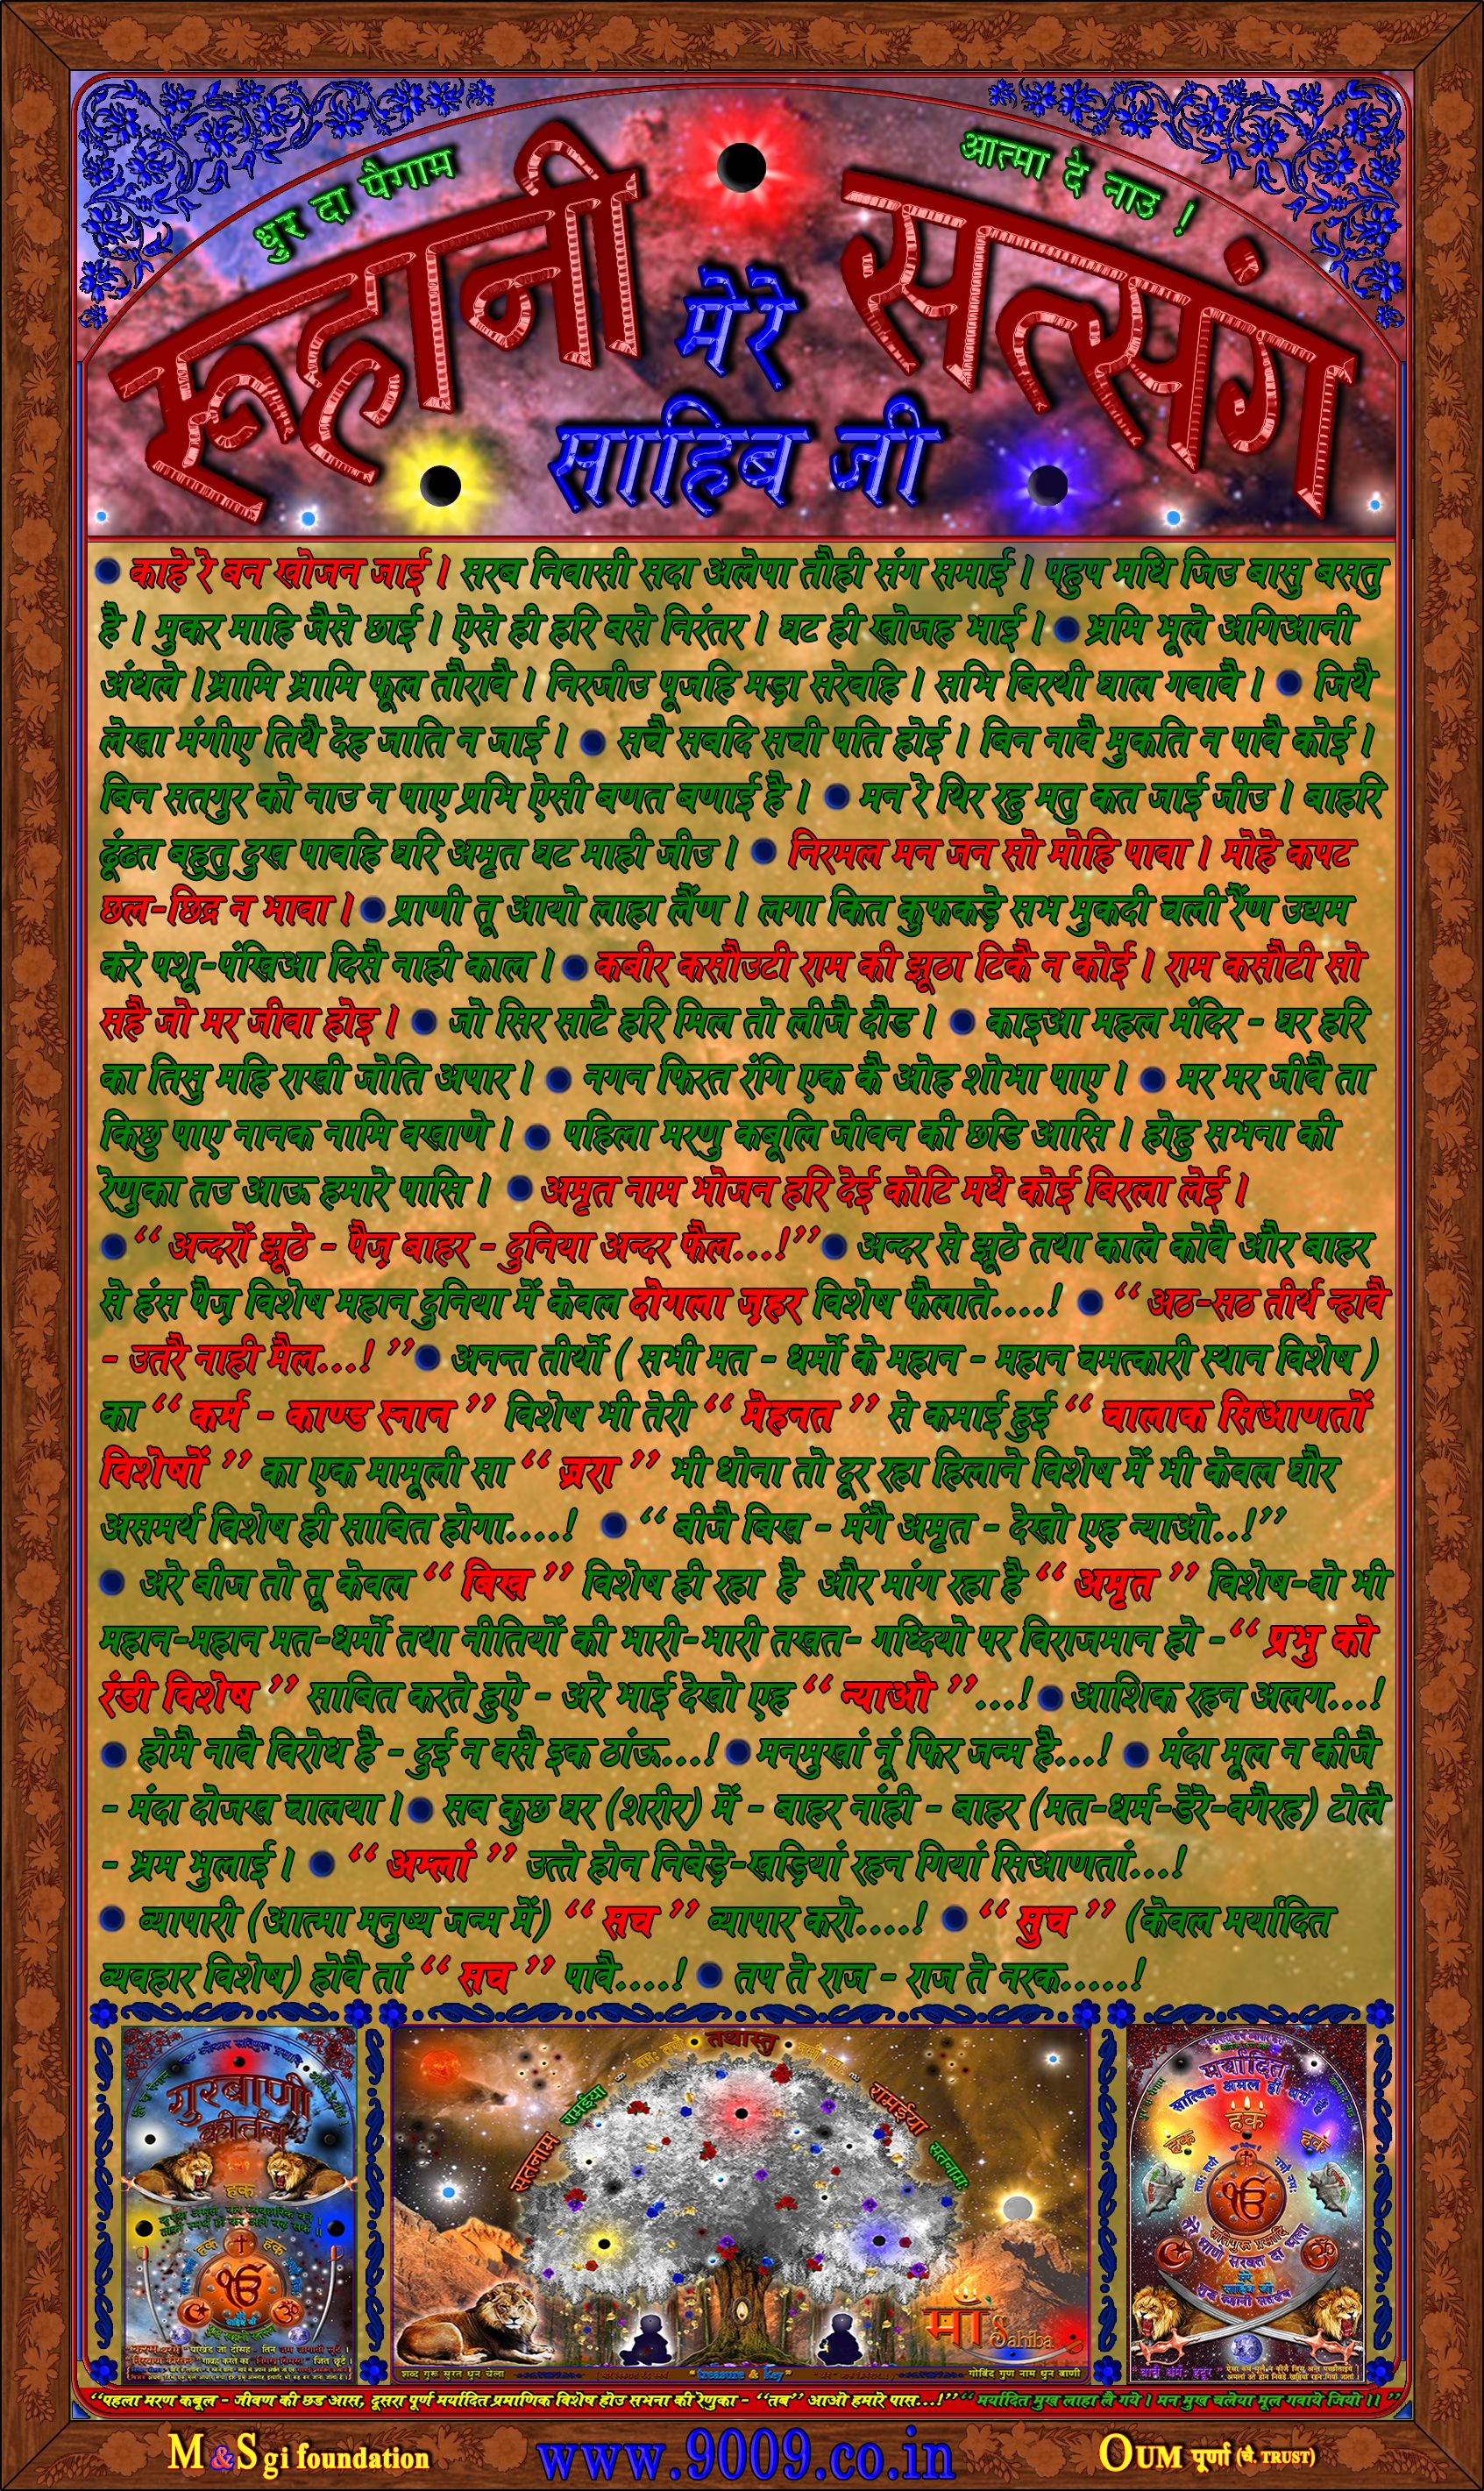 धुर दा पैगाम
आत्मा दे नाउ !
रूहानी सत्संग
मेरे
साहिब जी
काहे रे बन खोजन जाई । सरब निवासी सदा अलेपा तौही संग समाई । पहुप मधि जिउ बासु बसतु
है । मुकर माहि जैसे छाई । ऐसे ही हरि बसे निरंतर । घट ही खोजह भाई । भ्रमि भूले अगिआनी
अंधले ।भ्रामि भ्रामि फूल तौरावै । निरजीउ पूजहि मड़ा सरेवहि । सभि बिरथी घाल गवावै । जिथै
लेखा मंगीए तिथै देह जाति न जाई । सचै सबदि सची पति होई । बिन नावै मुकति न पावै कोई ।
बिन सतगुर को नाउ न पाए प्रभि ऐसी बणत बणाई है । मन रे थिर रहु मतु कत जाई जीउ । बाहरि
ढूंढत बहुतु दुख पावहि घरि अमृत घट माही जीउ । निरमल मन जन सो मोहि पावा । मोहे कपट
छल-छिद्र न भावा । प्राणी तू आयो लाहा लैंण । लगा कित कुफकड़े सभ मुकदी चली रैंण उद्यम
करे पशू-पंखिआ दिसै नाही काल । कबीर कसौउटी राम की झूठा टिकै न कोई । राम कसौटी सो
सहै जो मर जीवा होइ । जो सिर साटै हरि मिल तो लीजै दौड । काइआ महल मंदिर - घर हरि
का तिसु महि राखी जोति अपार । नगन फिरत रंगि एक कै ओह शोभा पाए । मर मर जीवै ता
किछु पाए नानक नामि वखाणे । पहिला मरणु कबूलि जीवन की छडि आसि । होहु सभना की
रेणुका तउ आऊ हमारे पासि । अमृत नाम भोजन हरि देई कोटि मधे कोई बिरला लेई ।
“ अन्दरों झूठे - पैज़ बाहर - दुनिया अन्दर फैल...!” अन्दर से झूठे तथा काले कोवै और बाहर
से हंस पैज़ विशेष महान दुनिया में केवल दोगला ज़हर विशेष फैलाते....! “ अठ-सठ तीर्थ न्हावै
- उतरै नाही मैल...! ” अनन्त तीर्थो ( सभी मत - धर्मो के महान - महान चमत्कारी स्थान विशेष )
का “ कर्म - काण्ड स्नान ” विशेष भी तेरी “ मेहनत ” से कमाई हुई “ चालाक सिआणतों
विशेषों ” का एक मामूली सा “ ज़रा ” भी धोना तो दूर रहा हिलाने विशेष में भी केवल घौर
असमर्थ विशेष ही साबित होगा....! “ बीजै बिख - मंगै अमृत - देखो एह न्याओ..!”
अरे बीज तो तू केवल “ बिख ” विशेष ही रहा है और मांग रहा है “ अमृत ” विशेष-वो भी
महान-महान मत-धर्मो तथा नीतियों की भारी-भारी तखत- गध्दियो पर विराजमान हो -“ प्रभु को
रंडी विशेष ” साबित करते हुऐ - अरे भाई देखो एह “ न्याओ ”...! आशिक रहन अलग...!
होमै नावै विरोध है - दुई न वसै इक ठांऊ...! मनमुखां नूं फिर जन्म है...! मंदा मूल न कीजै
- मंदा दोजख चालया । सब कुछ घर (शरीर) में - बाहर नांही - बाहर (मत-धर्म-डेरे-वगैरह) टोलै
- भ्रम भुलाई । “ अम्लां ” उत्ते होन निबेड़े-खड़ियां रहन गियां सिआणतां...!
व्यापारी (आत्मा मनुष्य जन्म में) “ सच ” व्यापार करो....! “ सुच ” (केवल मर्यादित
व्यवहार विशेष) होवै तां “ सच ” पावै....! तप ते राज - राज ते नरक.....!
गुरबाणी
कीर्तन
हक
हक
हक
तथास्तु
सतनाम
रामईया
रामईया
सतनाम
माँ
Sahiba
शब्द गुरू सुरत धुन चेला
“treasure & key”
गोबिंद गुण नाम धुन बाणी
मर्यादित
सात्विक अमल ही धर्म
हक
हक
हक
मेरे
साहिब जी
“पहला मरण कबूल - जीवण की छड आस, दूसरा पूर्ण मर्यादित प्रमाणिक विशेष होउ सभना की रेणुका - “तब” आओ हमारे पास...!” “ मर्यादित मुख लाहा लै गये । मन मुख चलेया मूल गवाये जियो ।। ”
M &S gi foundation
www.9009.co.in
OUM पूर्णा (चै. TRUST)